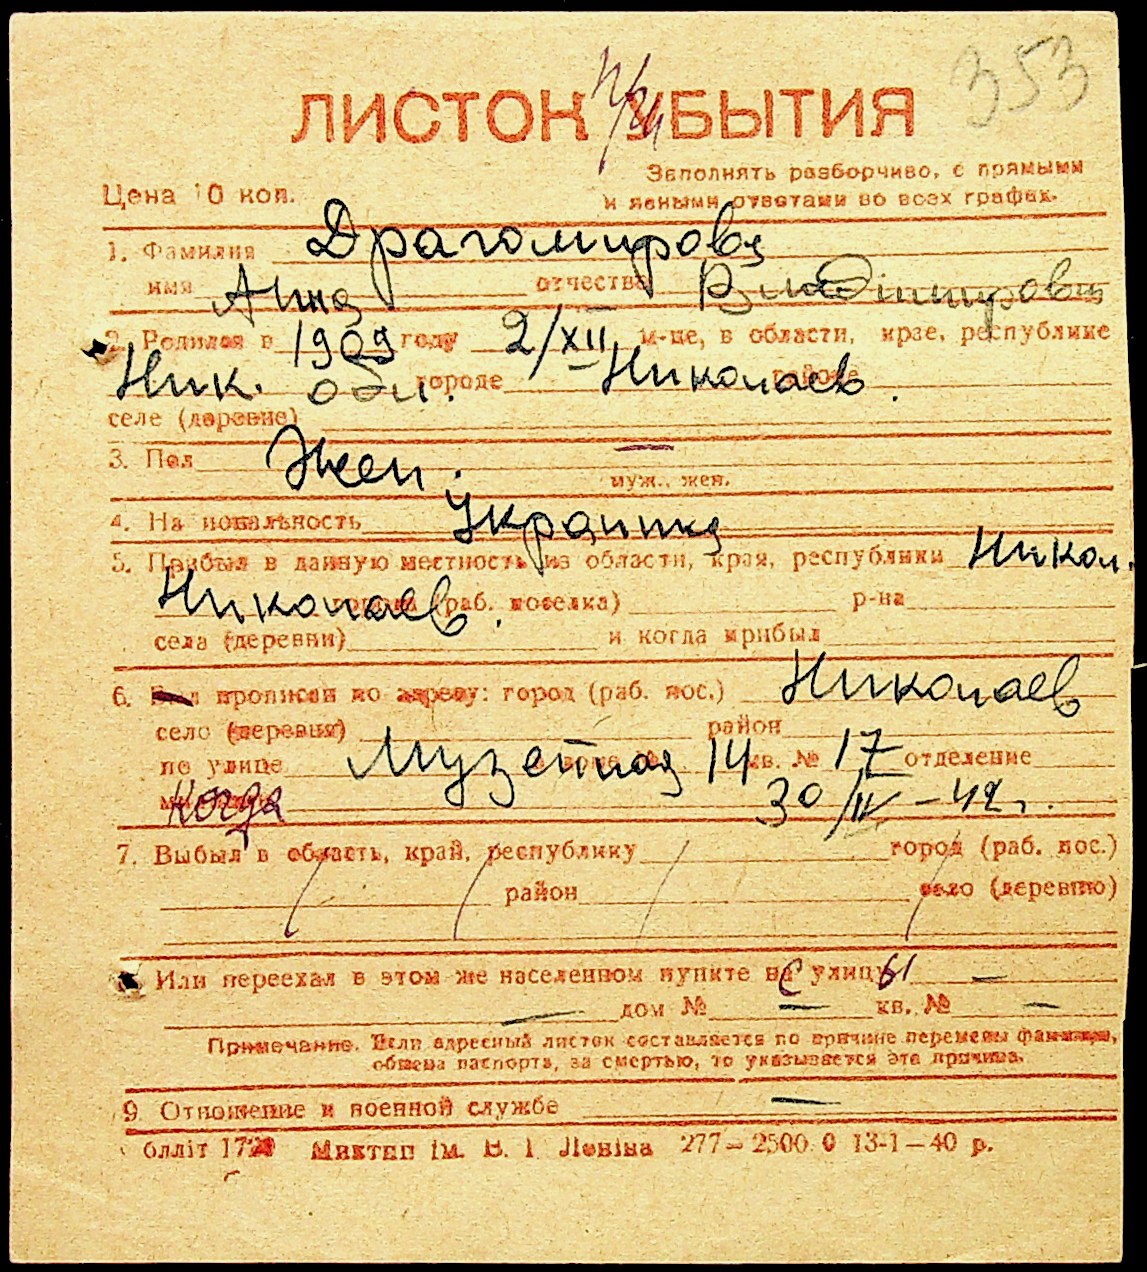 353
ЛИСТОК УБЫТИЯ
Заполнять разборчиво, с прямыми
Цена 10 коп.
и ясными ответами во всех графах.
1. Фамилия Драгомирова
имя Анна отчество Владимировна
2. Родился в 1909 году 2/XII м-це, в области, крае, республике
Ник. обл. городе Николаев. районе
селе (деревне)
3. Пол Жен.
муж., жен.
4. Национальность Украинка
5. Прибыл в данную местность из области, края, республики Никол.
Николаев. города (раб. поселка) р-на
села (деревни) и когда прибыл
6. Был прописан по адресу: город (раб. пос.) Николаев
село (деревня) район
по улице Музейная 14 кв. № 17 отделение
Когда 30/IV-42 г.
7. Выбыл в область, край, республику город (раб. пос.)
район село (деревню)
Или переехал в этом же населенном пункте на улицу с ы —
— дом № — кв. № —
Примечание. Если адресный листок составляется по причине перемены фамилии,
обмена паспорта, за смертью, то указывается эта причина.
9. Отношение к военной службе —
блліт 1721 Миктип ім. В. І Леніна 277—2500.0 13-1—40 р.